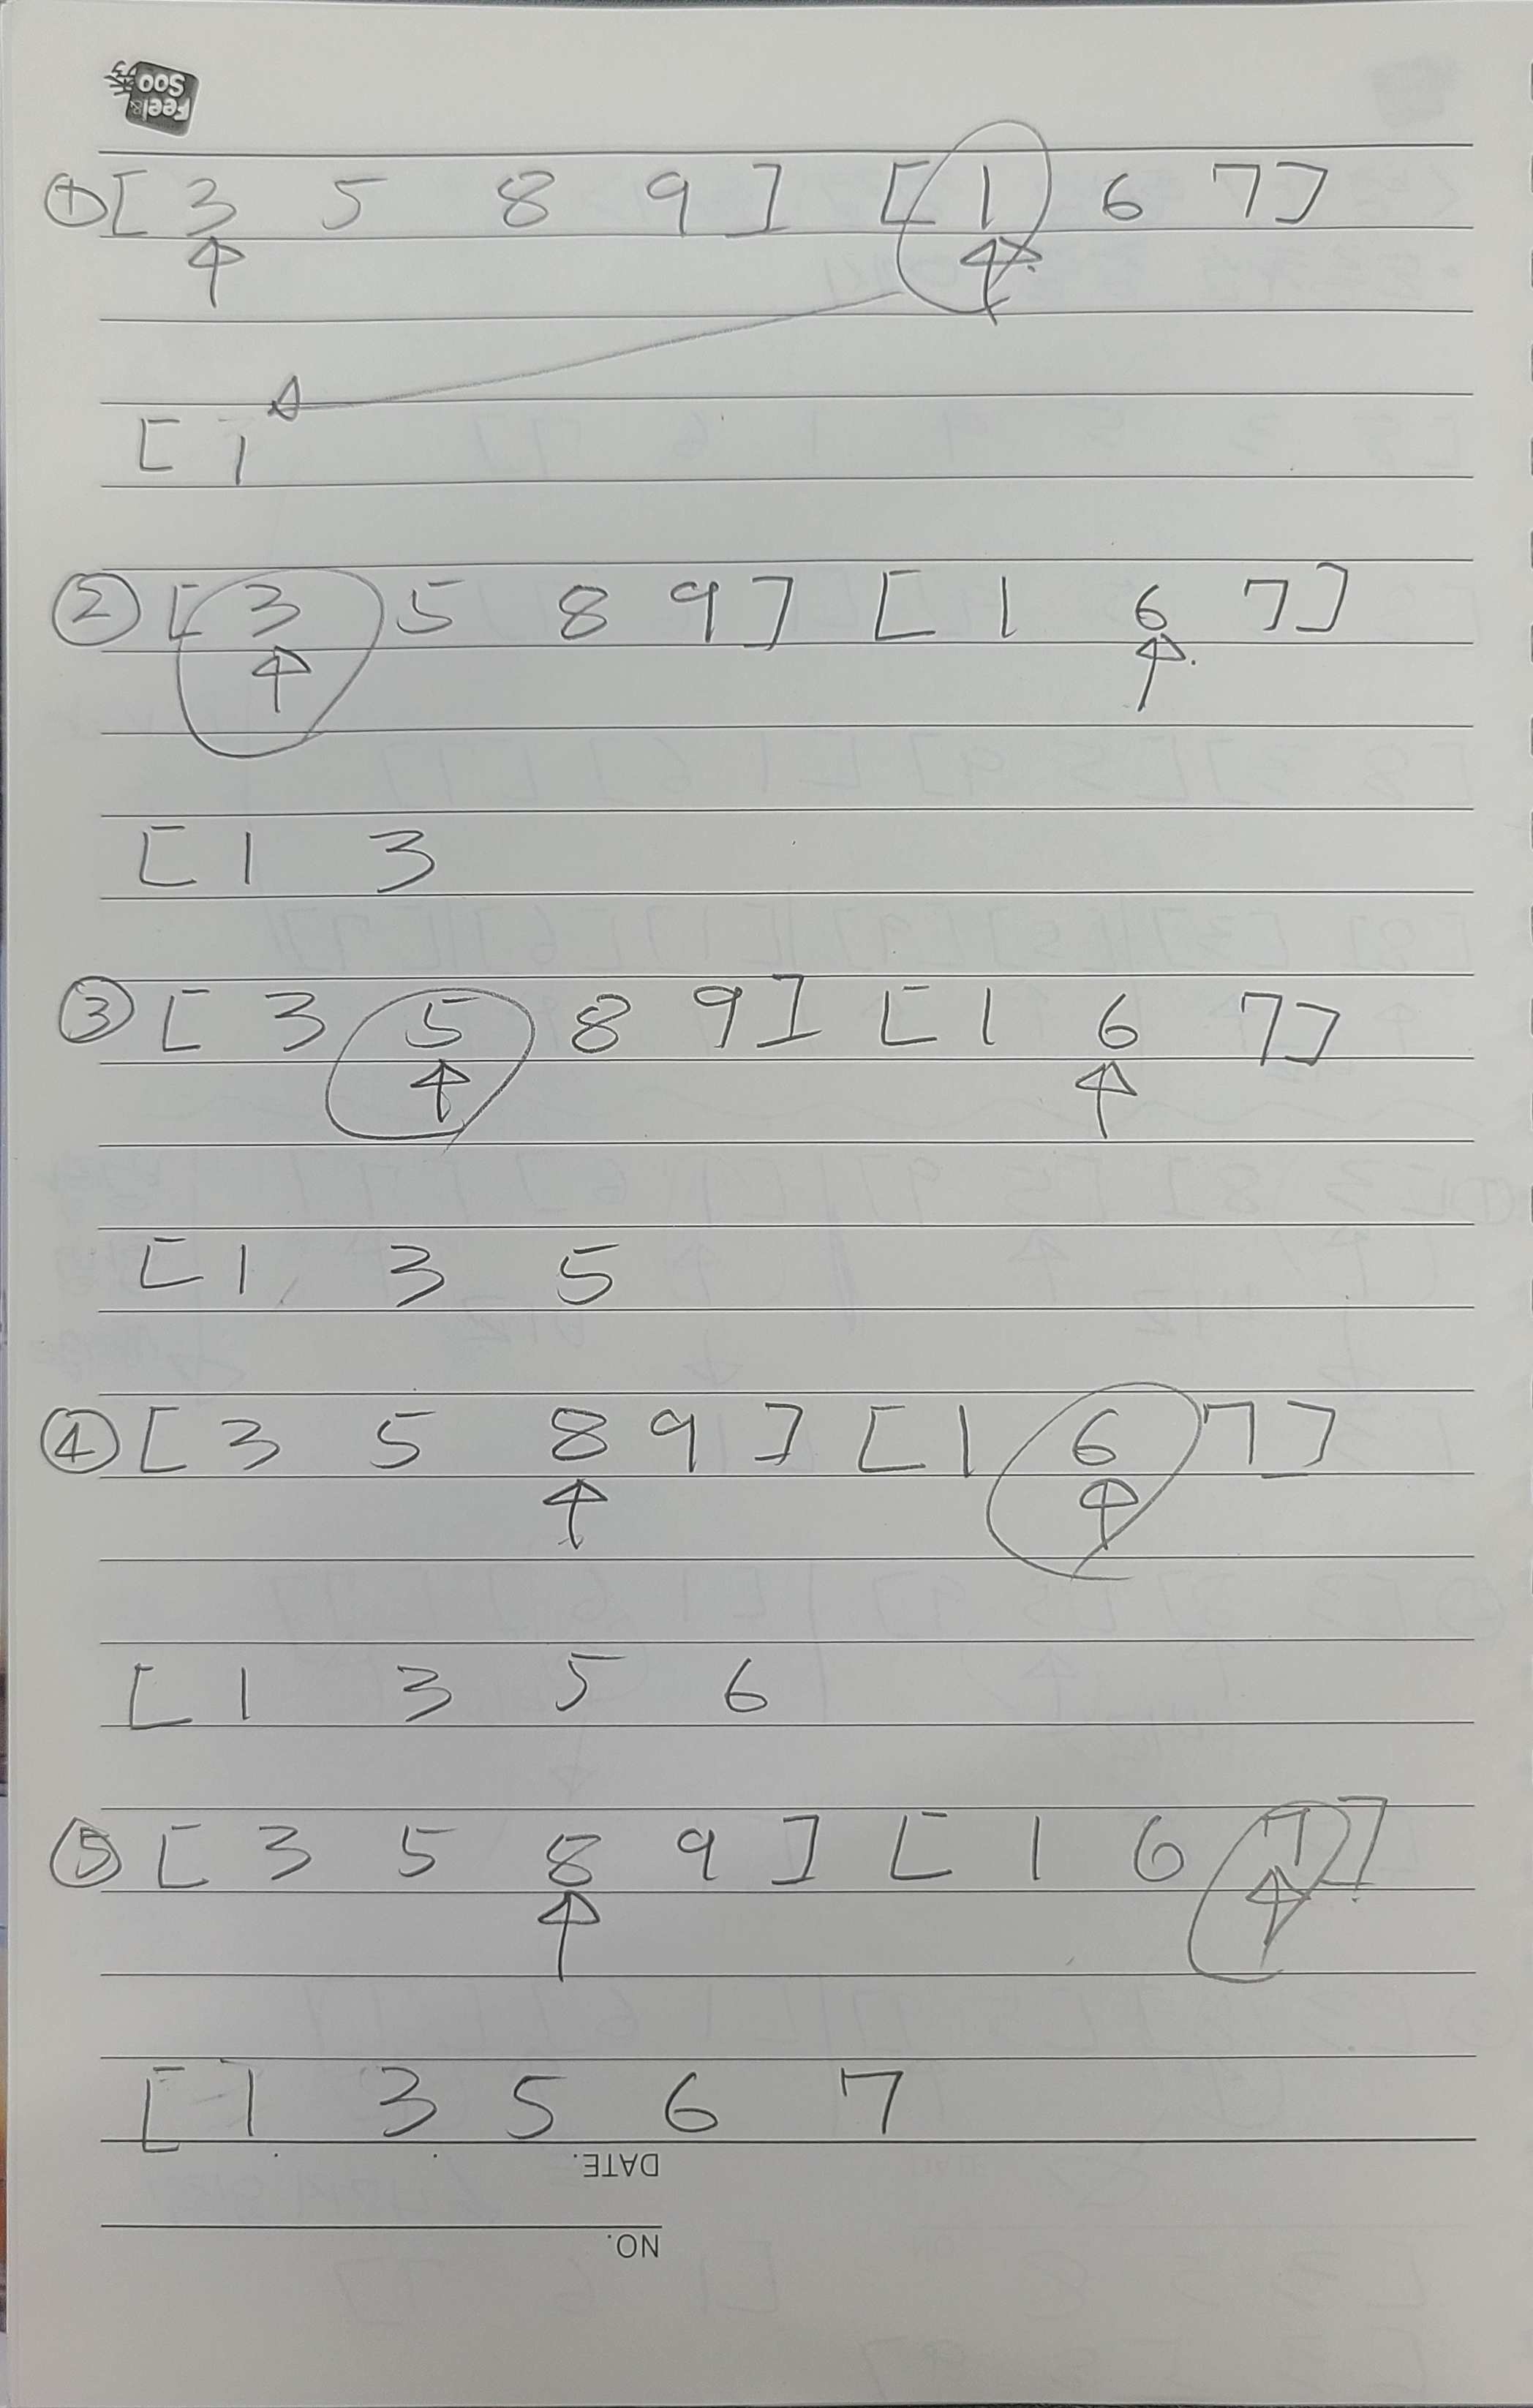 Feel&
Soo
① [ 3 5 8 9 ] [ 1 6 7 ]
[ 1
② [ 3 5 8 9 ] [ 1 6 7 ]
[ 1 3
③ [ 3 5 8 9 ] [ 1 6 7 ]
[ 1 3 5
④ [ 3 5 8 9 ] [ 1 6 7 ]
[ 1 3 5 6
⑤ [ 3 5 8 9 ] [ 1 6 7 ]
[ 1 3 5 6 7
DATE.
NO.